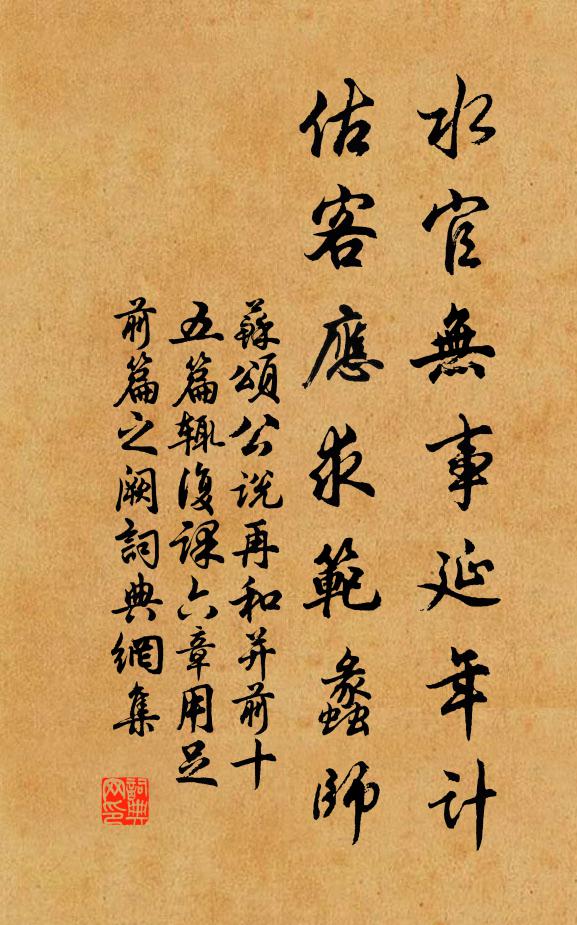 水官無事延年計
估客應求範蠡師
蘇頌公說再和并前十
五篇輒復課六章用足
前篇之闕詞典網集
詞典網印